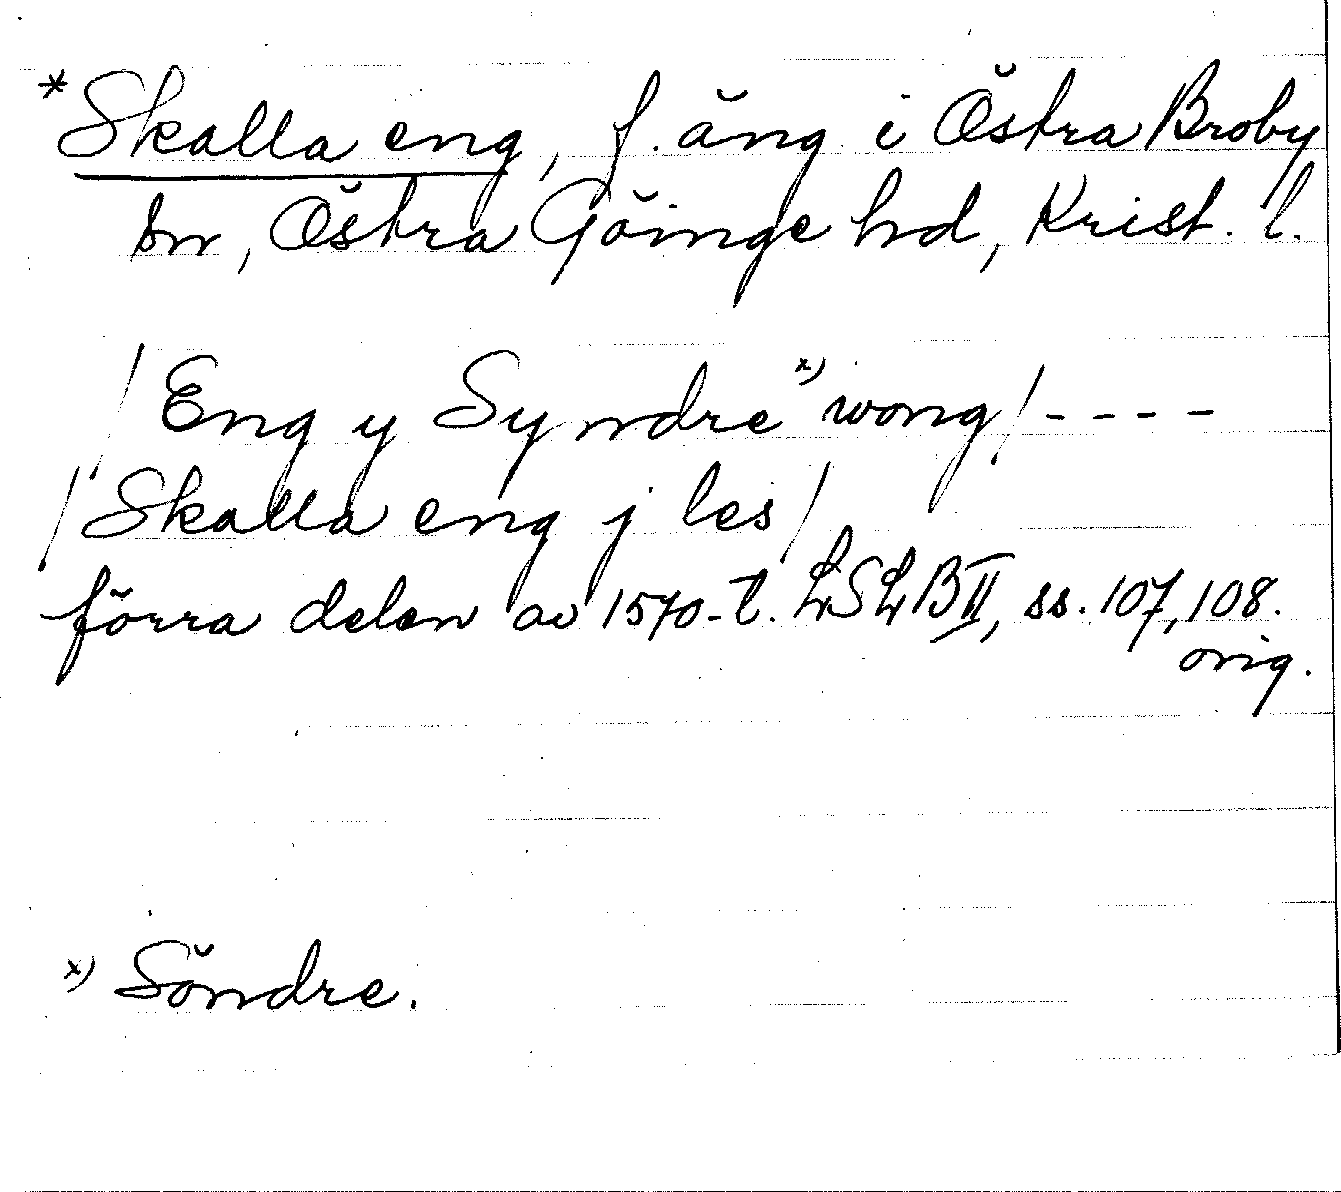 *Skalla eng, f. äng i Östra Broby
sn, Östra Göinge hd, Krist. l.
/Eng y Syndre x) wong/----
/Skalla eng j les/
förra delen av 1570-t. LSLB II, ss. 107, 108.
orig.
x) Söndre.